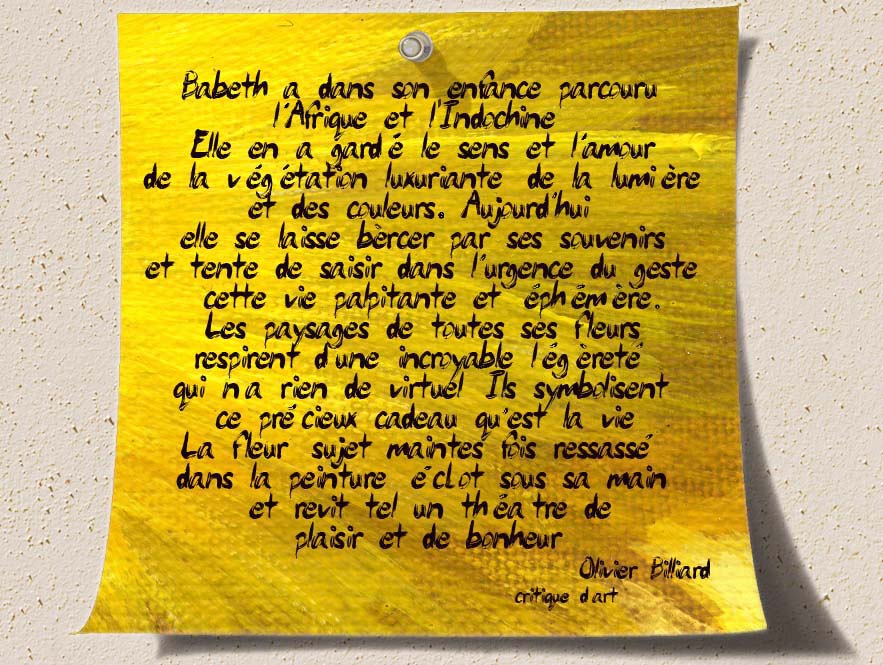 Babeth a dans son enfance parcouru
l'Afrique et l'Indochine
Elle en a gardé le sens et l'amour
de la végétation luxuriante de la lumière
et des couleurs. Aujourd'hui
elle se laisse bèrcer par ses souvenirs
et tente de saisir dans l'urgence du geste
cette vie palpitante et éphémère.
Les paysages de toutes ses fleurs
respirent d'une incroyable légèreté
qui n'a rien de virtuel Ils symbolisent
ce précieux cadeau qu'est la vie
La fleur sujet maintes fois ressassé
dans la peinture éclot sous sa main
et revit tel un théatre de
plaisir et de bonheur
Olivier Billiard
critique d'art